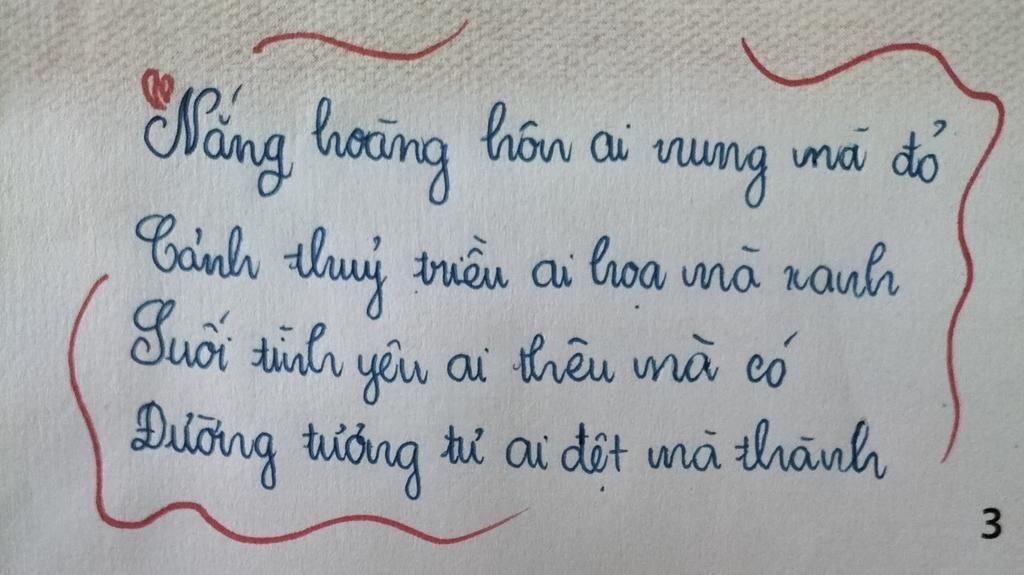 Nắng hoàng hôn ai nung mà đỏ
Cảnh thuỷ triều ai hoạ mà xanh
Suối tình yêu ai thêu mà có
Đường tương tư ai dệt mà thành
3